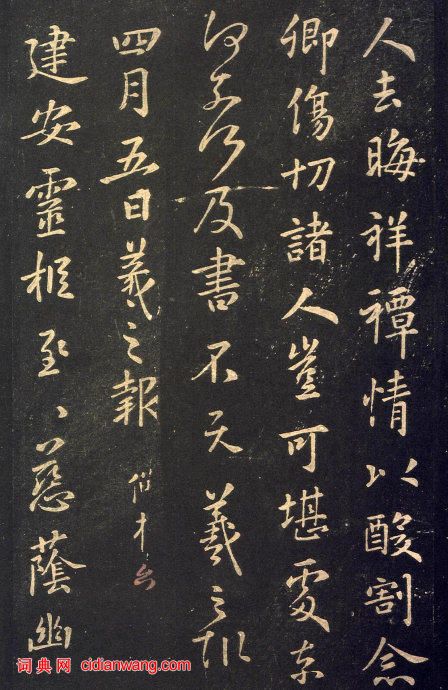 人去晦祥禫情以酸割念
卿傷切諸人豈可堪處奈
何奈何及書不羲之報
四月五日羲之報
建安靈柩至慈蔭幽
词典网 cidianwang.com